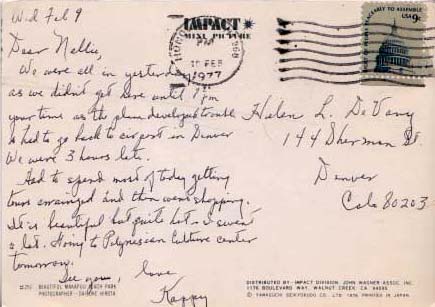 Wed Feb 9
Dear Nellie,
We were all in yesterday
as we didn't get here until 1 pm
your time as the plane developed trouble
& had to go back to airport in Denver
We were 3 hours late.
Had to spend most of today getting
tours arranged and then went shopping.
It is beautiful but quite hot - I sweat
a lot. Going to Polynesian Culture center
tomorrow.
See you, love
Kappy
IMPACT
MINI PICTURE
HONO
PM
10 FEB
1977
968
TO ASSEMBLE
USA 9c
Helen L. DeVany
144 Sherman St.
Denver
Colo 80203
BEAUTIFUL MAKAPUU BEACH PARK
PHOTOGRAPHER - HIROTA
DISTRIBUTED BY: IMPACT DIVISION, JOHN WAGNER ASSOC. INC.
1176 BOULEVARD WAY, WALNUT CREEK, CA 94595
© YAMAGUCHI SEIKYODUO CO., LTD. 1976 PRINTED IN JAPAN